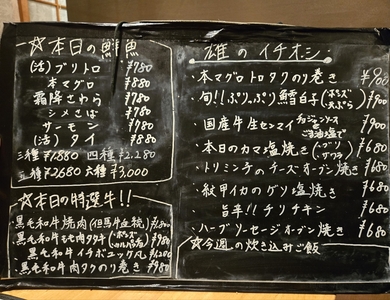 ☆本日の鮮魚
(活)ブリトロ ¥780
本マグロ ¥880
霜降さわら ¥780
シメさば ¥780
サーモン ¥780
(活)タイ ¥880
三種¥1,880 四種¥2,280
五種¥2680 六種¥3,000
☆本日の特選牛!!
黒毛和牛焼肉(但馬牛血統)
黒毛和牛もも肉タタキ ¥980
黒毛和牛イチボニンニク丸 ¥1,200
黒毛和牛肉タクのり巻き ¥980
雄のイチオシ
・本マグロトロタクのり巻き ¥900
・旬!!ぷりっぷり鱈白子(・ポン ・天ぷら) ¥900
・国産牛生センマイ チョジャンソース ごま油塩で ¥900
・本日のカマ塩焼き(ブリ) ¥680
・トリミン子のチーズオーブン焼き ¥680
・紋甲イカのゲソ塩焼き ¥680
・旨辛!!チリチキン ¥680
・ハーブソーセージオーブン焼き ¥680
☆今週の炊き込みご飯